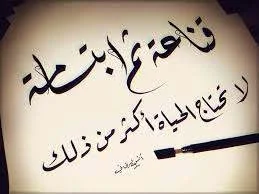 قناعة ثم ابتسامة
لا تحتاج الحياة أكثر من ذلك